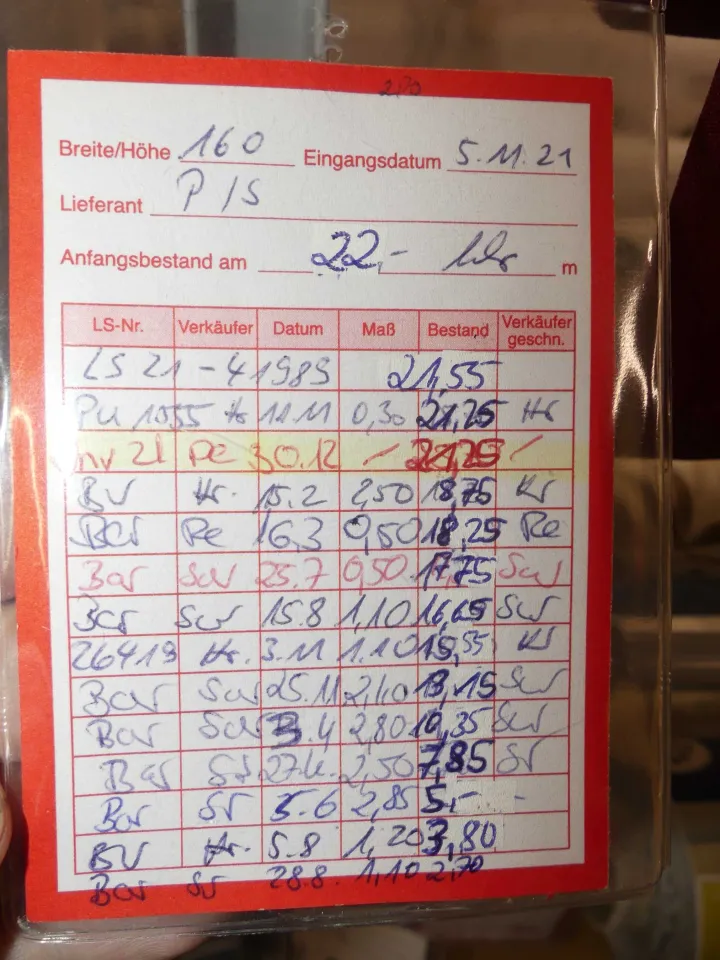 2,70
Breite/Höhe 160 Eingangsdatum 5.11.21
Lieferant P/S
Anfangsbestand am 22,- m
LS-Nr. Verkäufer Datum Maß Bestand Verkäufer geschn.
LS 21-41989 21,55
Hr 0,30 21,25 Hr
30.12 21,25
BV Kr. 15.2 2,50 18,75 Kr
Bar Pe 16.3 0,50 18,25 Pe
Bar Sw 25.7 0,50 17,75 Sw
Bar Sw 15.8 1,10 16,65 Sw
26419 Kr. 3.11 1.10 15,55 Kr
Bar Sw 25.11 2,40 13,15 Sw
Bar Sw 3.4 2,80 10,35 Sw
Bar 27.4. 2,50 7,85
Bar 5.6 2,85 5,- -
BV Kr. 5.8 1,20 3,80
Bar 28.8. 1,10 2,70